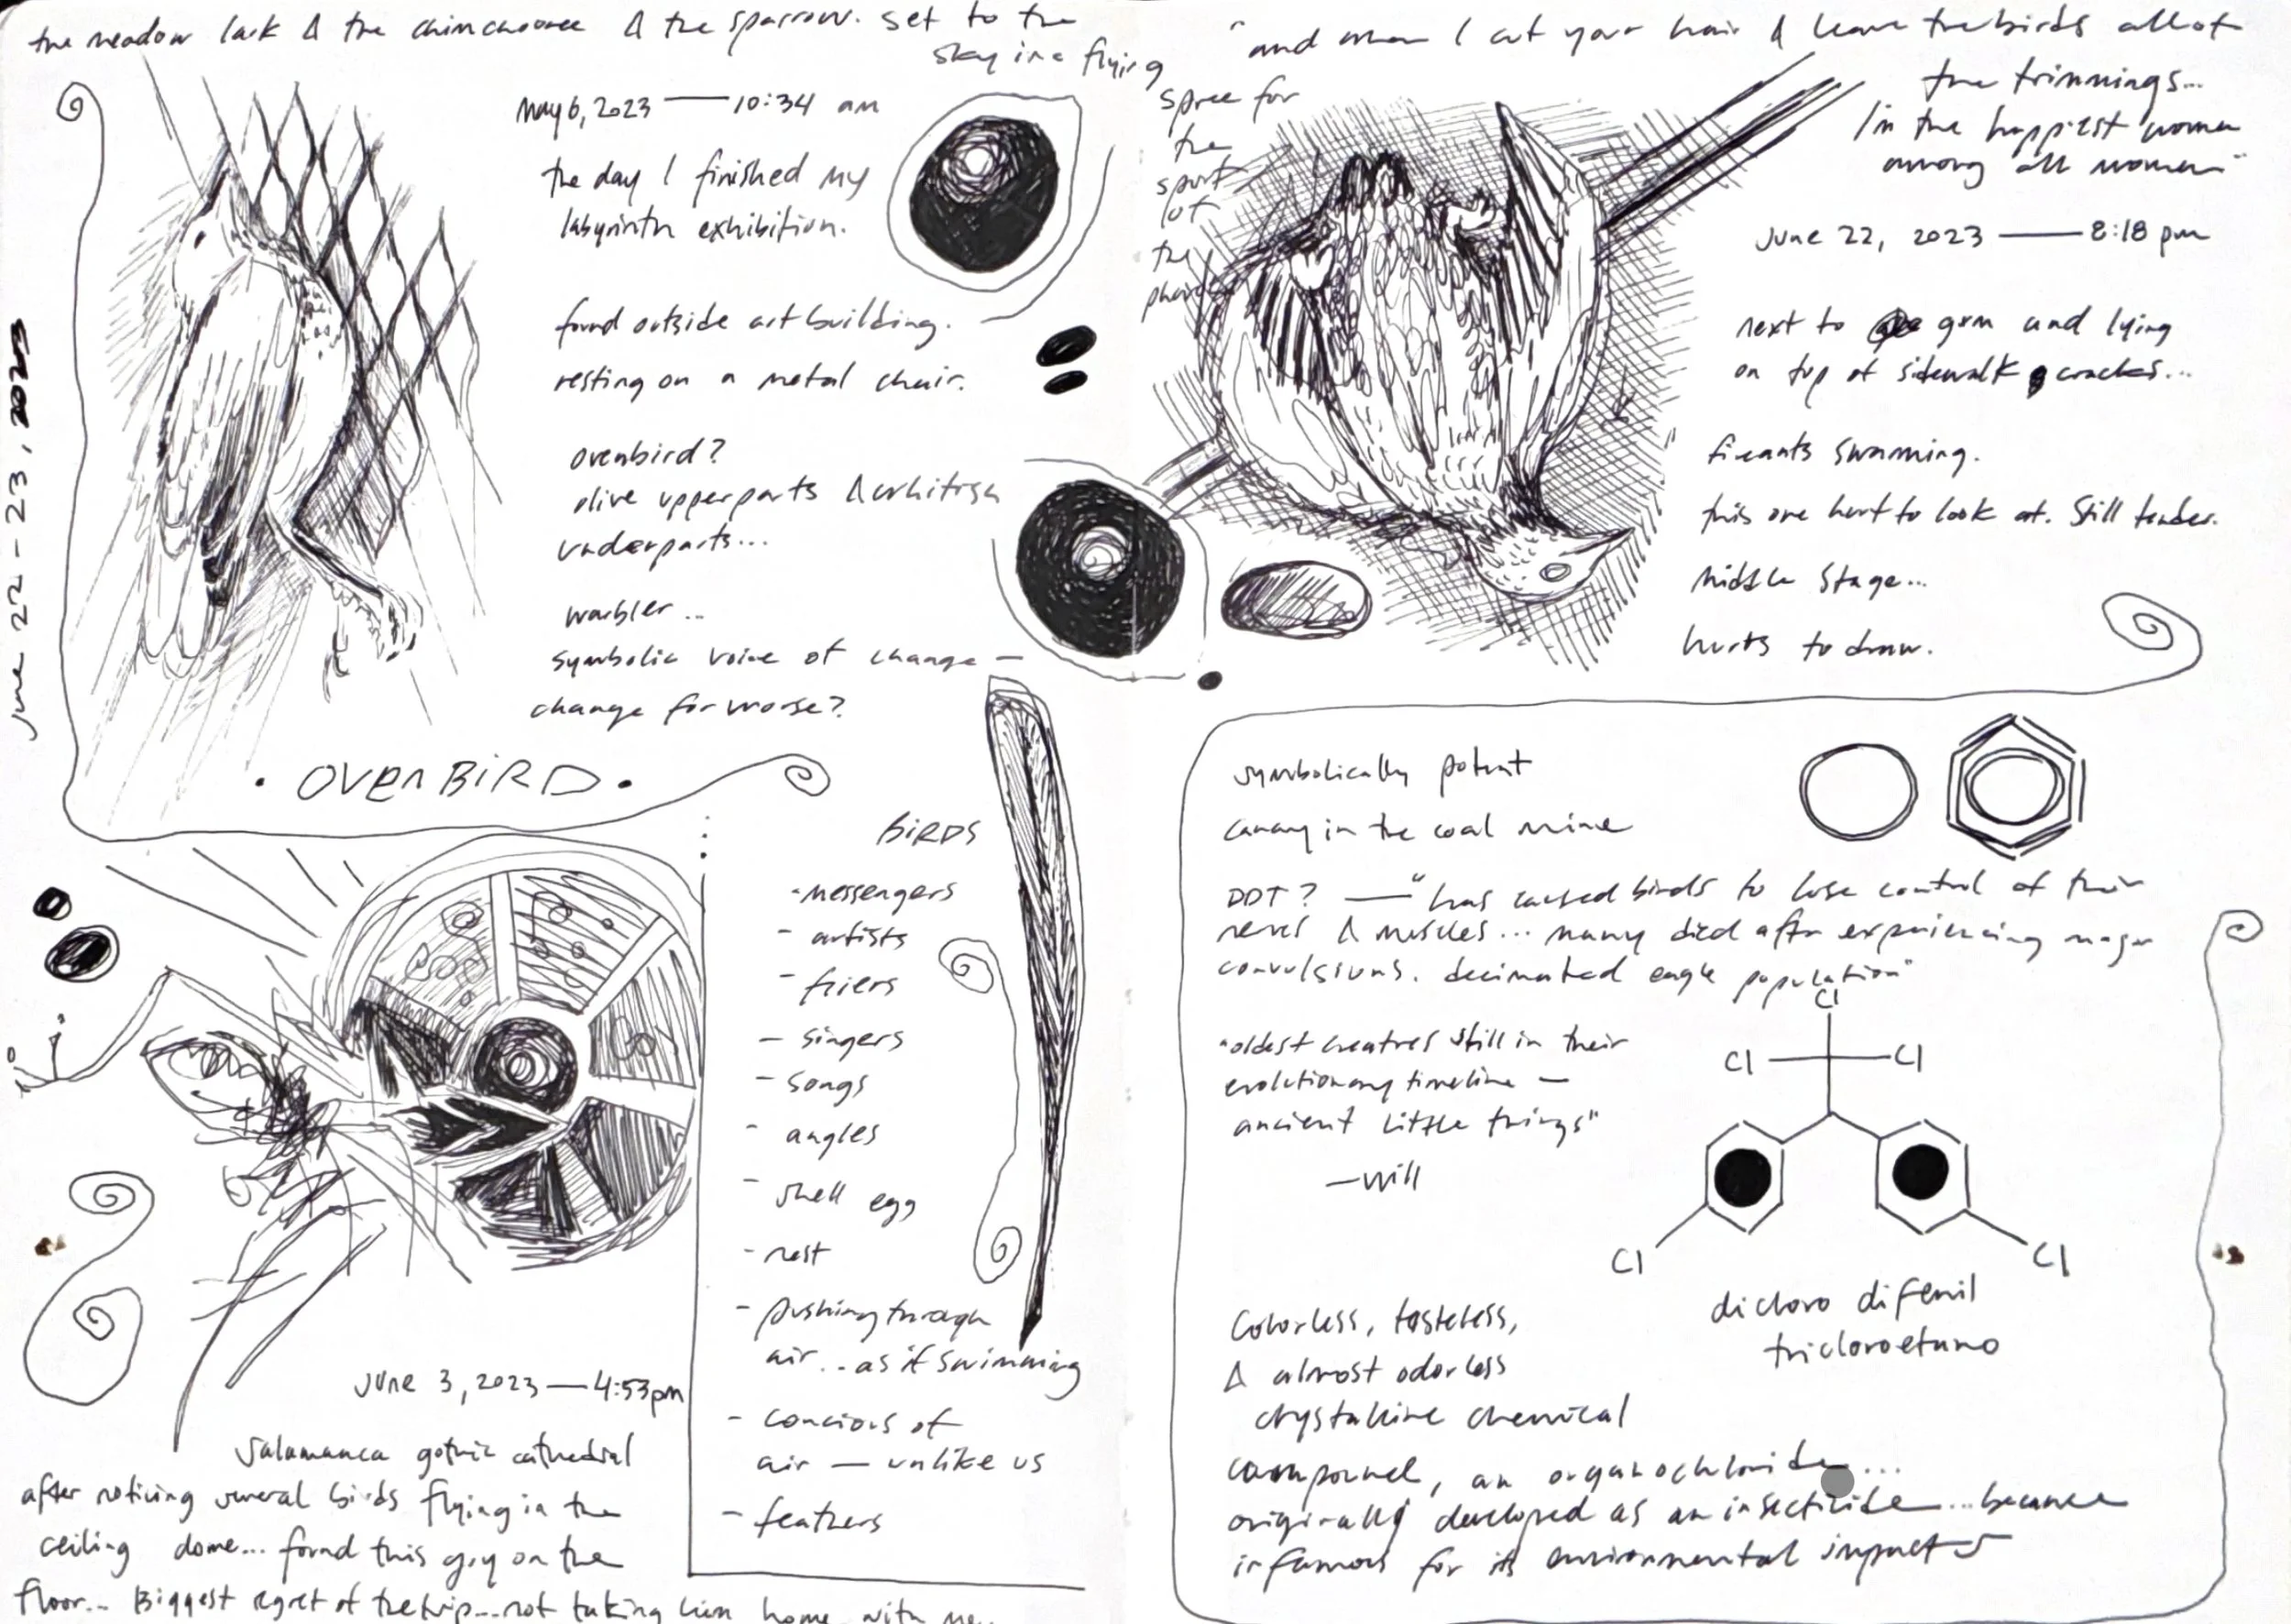 the meadow lark & the chimchooree & the sparrow. set to the
sky in a flying
spree for
the
sport
of
the
"and when I cut your hair & leave the birds all of
the trimmings...
I'm the happiest woman
among all women"
June 22 - 23, 2023
may 6, 2023 — 10:34 am
the day I finished my
labyrinth exhibition.
found outside art building.
resting on a metal chair.
ovenbird?
olive upperparts & whitish
underparts...
warbler...
symbolic voice of change —
change for worse?
• OVENBIRD •
June 22, 2023 — 8:18 pm
next to gum and lying
on top of sidewalk cracks...
fireants swarming.
this one hurt to look at. Still tender.
middle stage...
hurts to draw.
June 3, 2023 — 4:53pm
Salamanca gothic cathedral
after noticing several birds flying in the
ceiling dome... found this guy on the
floor... Biggest regret of the trip... not taking him home with me..
BIRDS
- messengers
- artists
- fliers
- singers
- songs
- angles
- shell egg
- nest
- pushing through
air... as if swimming
- concious of
air — unlike us
- feathers
symbolically potent
canary in the coal mine
DDT? — "has caused birds to lose control of their
nerves & muscles... many died after experiencing major
convulsions. decimated eagle population"
"oldest creatures still in their
evolutionary timeline —
ancient little things"
— will
Cl
Cl
Cl
Cl
Cl
dicloro difenil
tricloroetano
Colorless, tasteless,
& almost odorless
crystalline chemical
compound, an organochloride...
originally developed as an insecticide... became
infamous for its environmental impacts